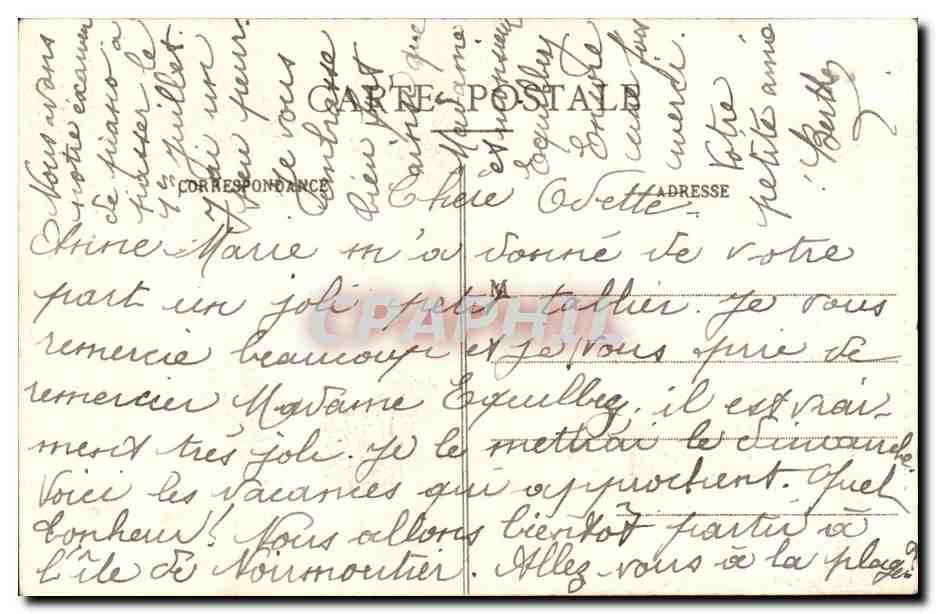 CARTE POSTALE
CORRESPONDANCE
ADRESSE
M
CPAPHIL
Chère Odette
Anne Marie m'a donné de votre
part un joli petit tallier. Je vous
remercie beaucoup et je vous prie de
remercier Madame Equilbey. il est vrai-
ment très joli. Je le mettrai le dimanche.
Voici les vacances qui approchent. Quel
bonheur! Nous allons bientôt partir à
l'île de Noirmoutier. Allez-vous à la plage?
Nous avons
notre examen
de piano à
passer le
juillet.
J'ai un
peu peur.
Je vous
embrasse
bien fort
ainsi que
Madame
et monsieur
Equilbey
Encore
une fois
merci.
Votre
petite amie
Berthe